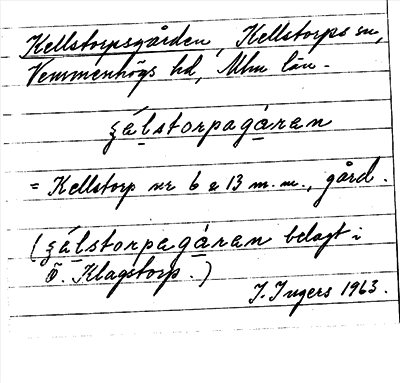 Kellstorpsgården, Kellstorps sn,
Vemmenhögs hd, Mlm län.
ʒálstorpagáran
= Kellstorp nr 6 a 13 m.m., gård.
(ʒálstorpagáran belagt i
Ö. Klagstorp.)
I. Ingers 1963.